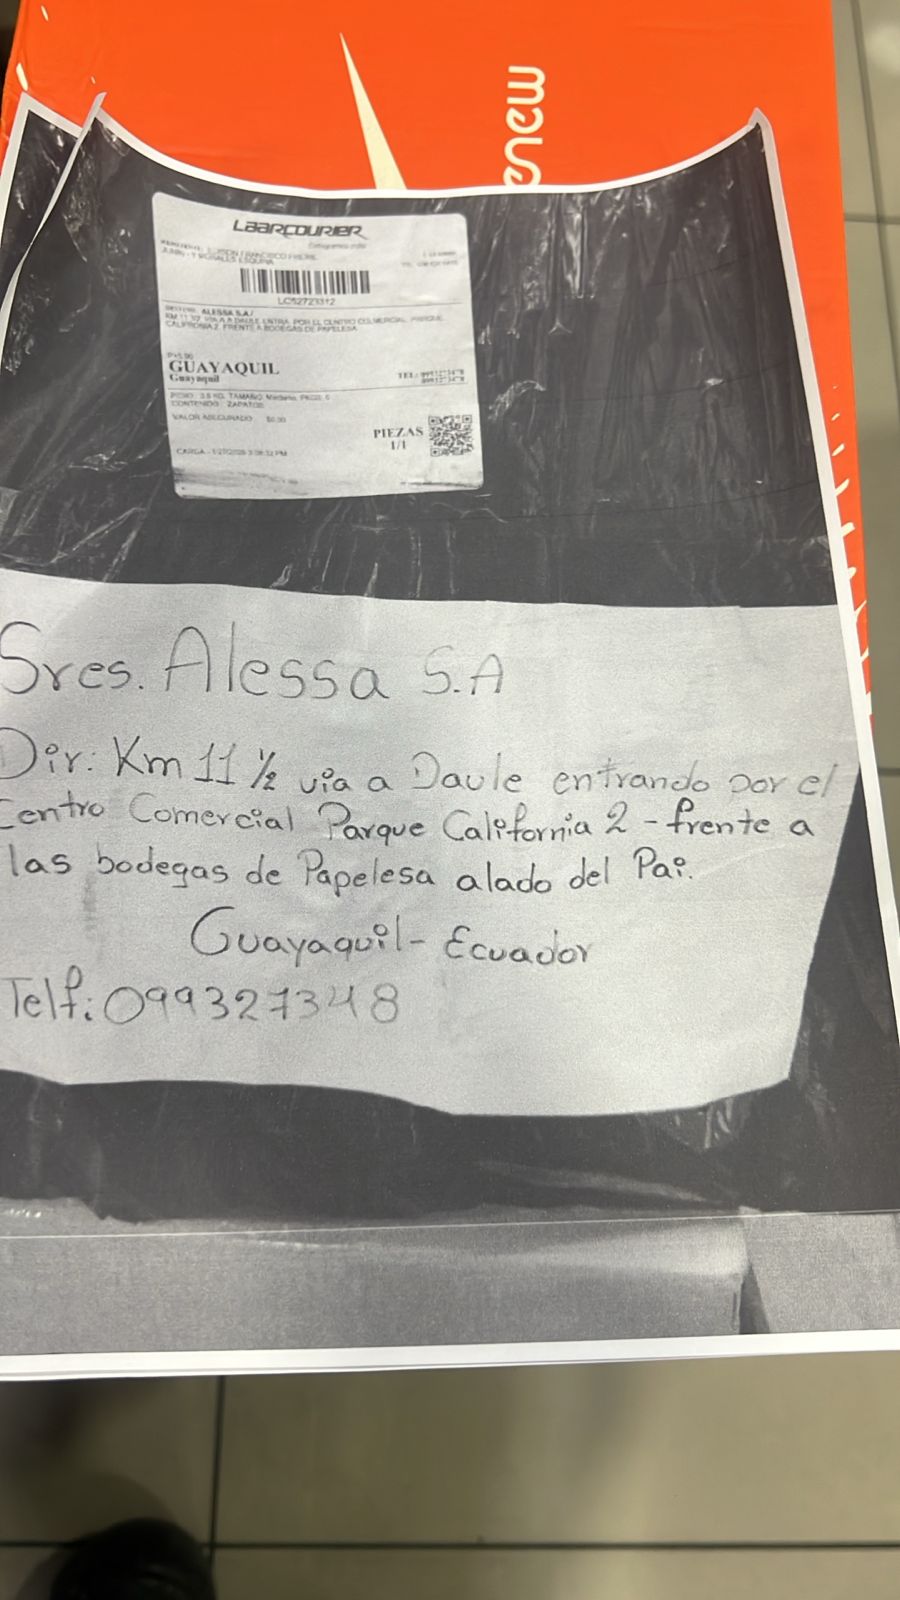 renew
LAARCOURIER
LC52723312
ALESSA S.A/
KM 11 1/2 VIA A DAULE ENTRA. POR EL CENTRO COMERCIAL PARQUE
CALIFRONIA 2, FRENTE A BODEGAS DE PAPELESA
GUAYAQUIL
Guayaquil
TEL:
PESO: 3.8 KG. TAMAÑO: Mediano,
CONTENIDO: ZAPATOS
VALOR ASEGURADO $0.00
PIEZAS
1/1
CARGA -
Sres. Alessa S.A
Dir: Km 11 ½ via a Daule entrando por el
Centro Comercial Parque California 2 - frente a
las bodegas de Papelesa alado del Pai.
Guayaquil - Ecuador
Telf: 099327348